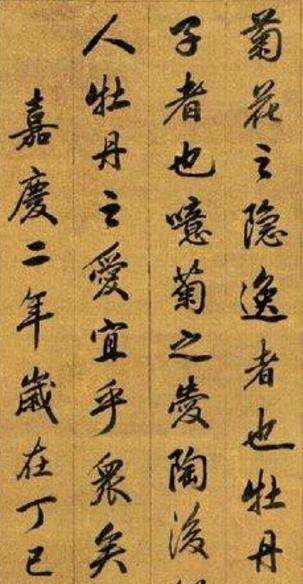 菊花之隐逸者也牡丹
子者也噫菊之愛陶後
人牡丹之愛宜乎衆矣
嘉慶二年歲在丁巳